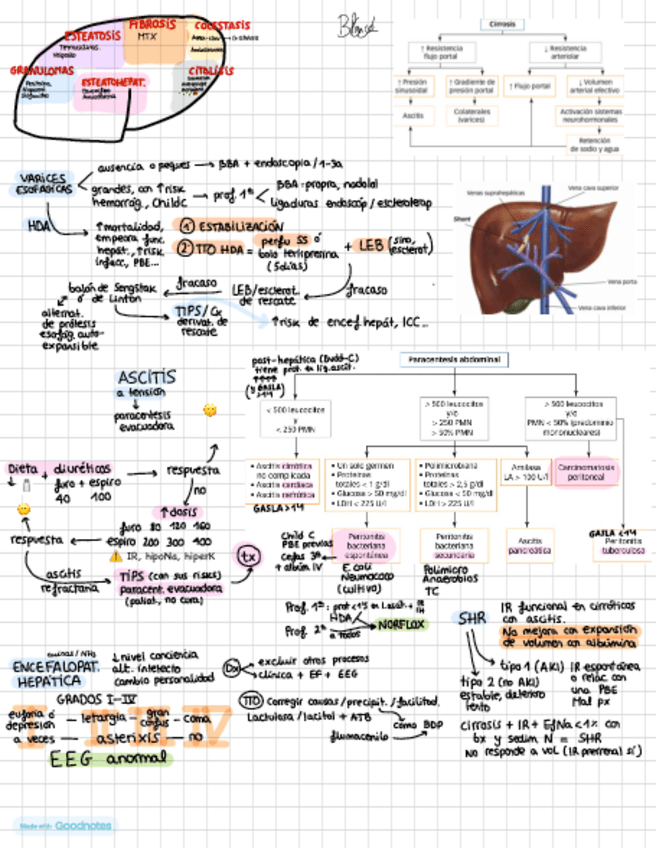 FIBROSIS
MTX
COLESTASIS
ESTEATOSIS
GRANULOMAS
ESTEATOHEPAT.
CITÓLISIS
Cirrosis
↑ Resistencia flujo portal
↓ Resistencia arteriolar
↑ Presión sinusoidal
↑ Gradiente de presión portal
↑ Flujo portal
↓ Volumen arterial efectivo
Ascitis
Colaterales (varices)
Activación sistemas neurohormonales
Retención de sodio y agua
VARICES ESOFÁGICAS
ausencia o peques → BBA + endoscopia / 1-3a
grandes, con ↑risk hemorrag, Child C → prof. 1ª
BBA: propra, nadolol
ligaduras endoscóp / escleroterap
HDA
↑mortalidad, empeora func. hepát., ↑risk infecc, PBE...
① ESTABILIZACIÓN
② TTO HDA = perfu SS ó bolo terlipresina (5días) + LEB (sino, esclerot)
fracaso
LEB/esclerot. de rescate
fracaso
balón de Sengstak ó de Linton
TIPS / Cx derivat. de rescate
↑risk de encef hepát, ICC...
alternat. de prótesis esofág. auto-expansible
Venas suprahepáticas
Vena cava superior
Shunt
Vena porta
Vena cava inferior
ASCITIS
a tensión
↓
paracentesis evacuadora
post-hepática (Budd-C) tiene prot. en líq. ascit.
↑↑↑↑
Paracentesis abdominal
< 500 leucocitos y < 250 PMN
> 500 leucocitos y/o > 250 PMN > 50% PMN
> 500 leucocitos y/o PMN < 50% (predominio mononucleares)
• Ascitis cirrótica no complicada
• Ascitis cardiaca
• Ascitis nefrótica
• Un solo germen
• Proteínas totales < 1 g/dl
• Glucosa > 50 mg/dl
• LDH < 225 U/l
• Polimicrobiana
• Proteínas totales > 2,5 g/dl
• Glucosa < 50 mg/dl
• LDH > 225 U/l
Amilasa LA > 100 U/l
Carcinomatosis peritoneal
GASLA > 1'1
Peritonitis bacteriana espontánea
Peritonitis bacteriana secundaria
Ascitis pancreática
GASLA < 1'1
Peritonitis tuberculosa
Child C
PBE previas
Cefas 3ª + albúm IV
E. coli
Neumococo
(cultivo)
Polimicro
Anaerobios
TC
Dieta + diuréticos → respuesta
furo + espiro
40 100
no
↑dosis
furo 80 120 160
espiro 200 300 400
respuesta
⚠ IR, hipoNa, hiperK
ascitis refractaria
TIPS (con sus risks)
paracent. evacuadora
(paliat., no cura)
tx
Prof. 1ª:
HDA
Prof. 2ª a todos
NORFLOX
SHR
IR funcional en cirróticos con ascitis.
No mejora con expansión de volumen con albúmina
tipo 1 (AKI) IR espontánea o relac. con una PBE
Mal px
tipo 2 (no AKI) estable, deterioro lento
cirrosis + IR + EfNa <1% con bx y sedim N = SHR
No responde a vol (IR prerrenal sí)
ENCEFALOPAT. HEPÁTICA
↓nivel conciencia
alt. intelecto
cambio personalidad
Dx
excluir otros procesos
clínica + EF + EEG
GRADOS I-IV
euforia ó depresión — letargia — gran confus — coma
a veces — asterixis — no
I II III IV
EEG anormal
TTO
Corregir causas / precipit. / facilitad.
Lactulosa / lacitol + ATB
flumacenilo → como BDP
Made with Goodnotes